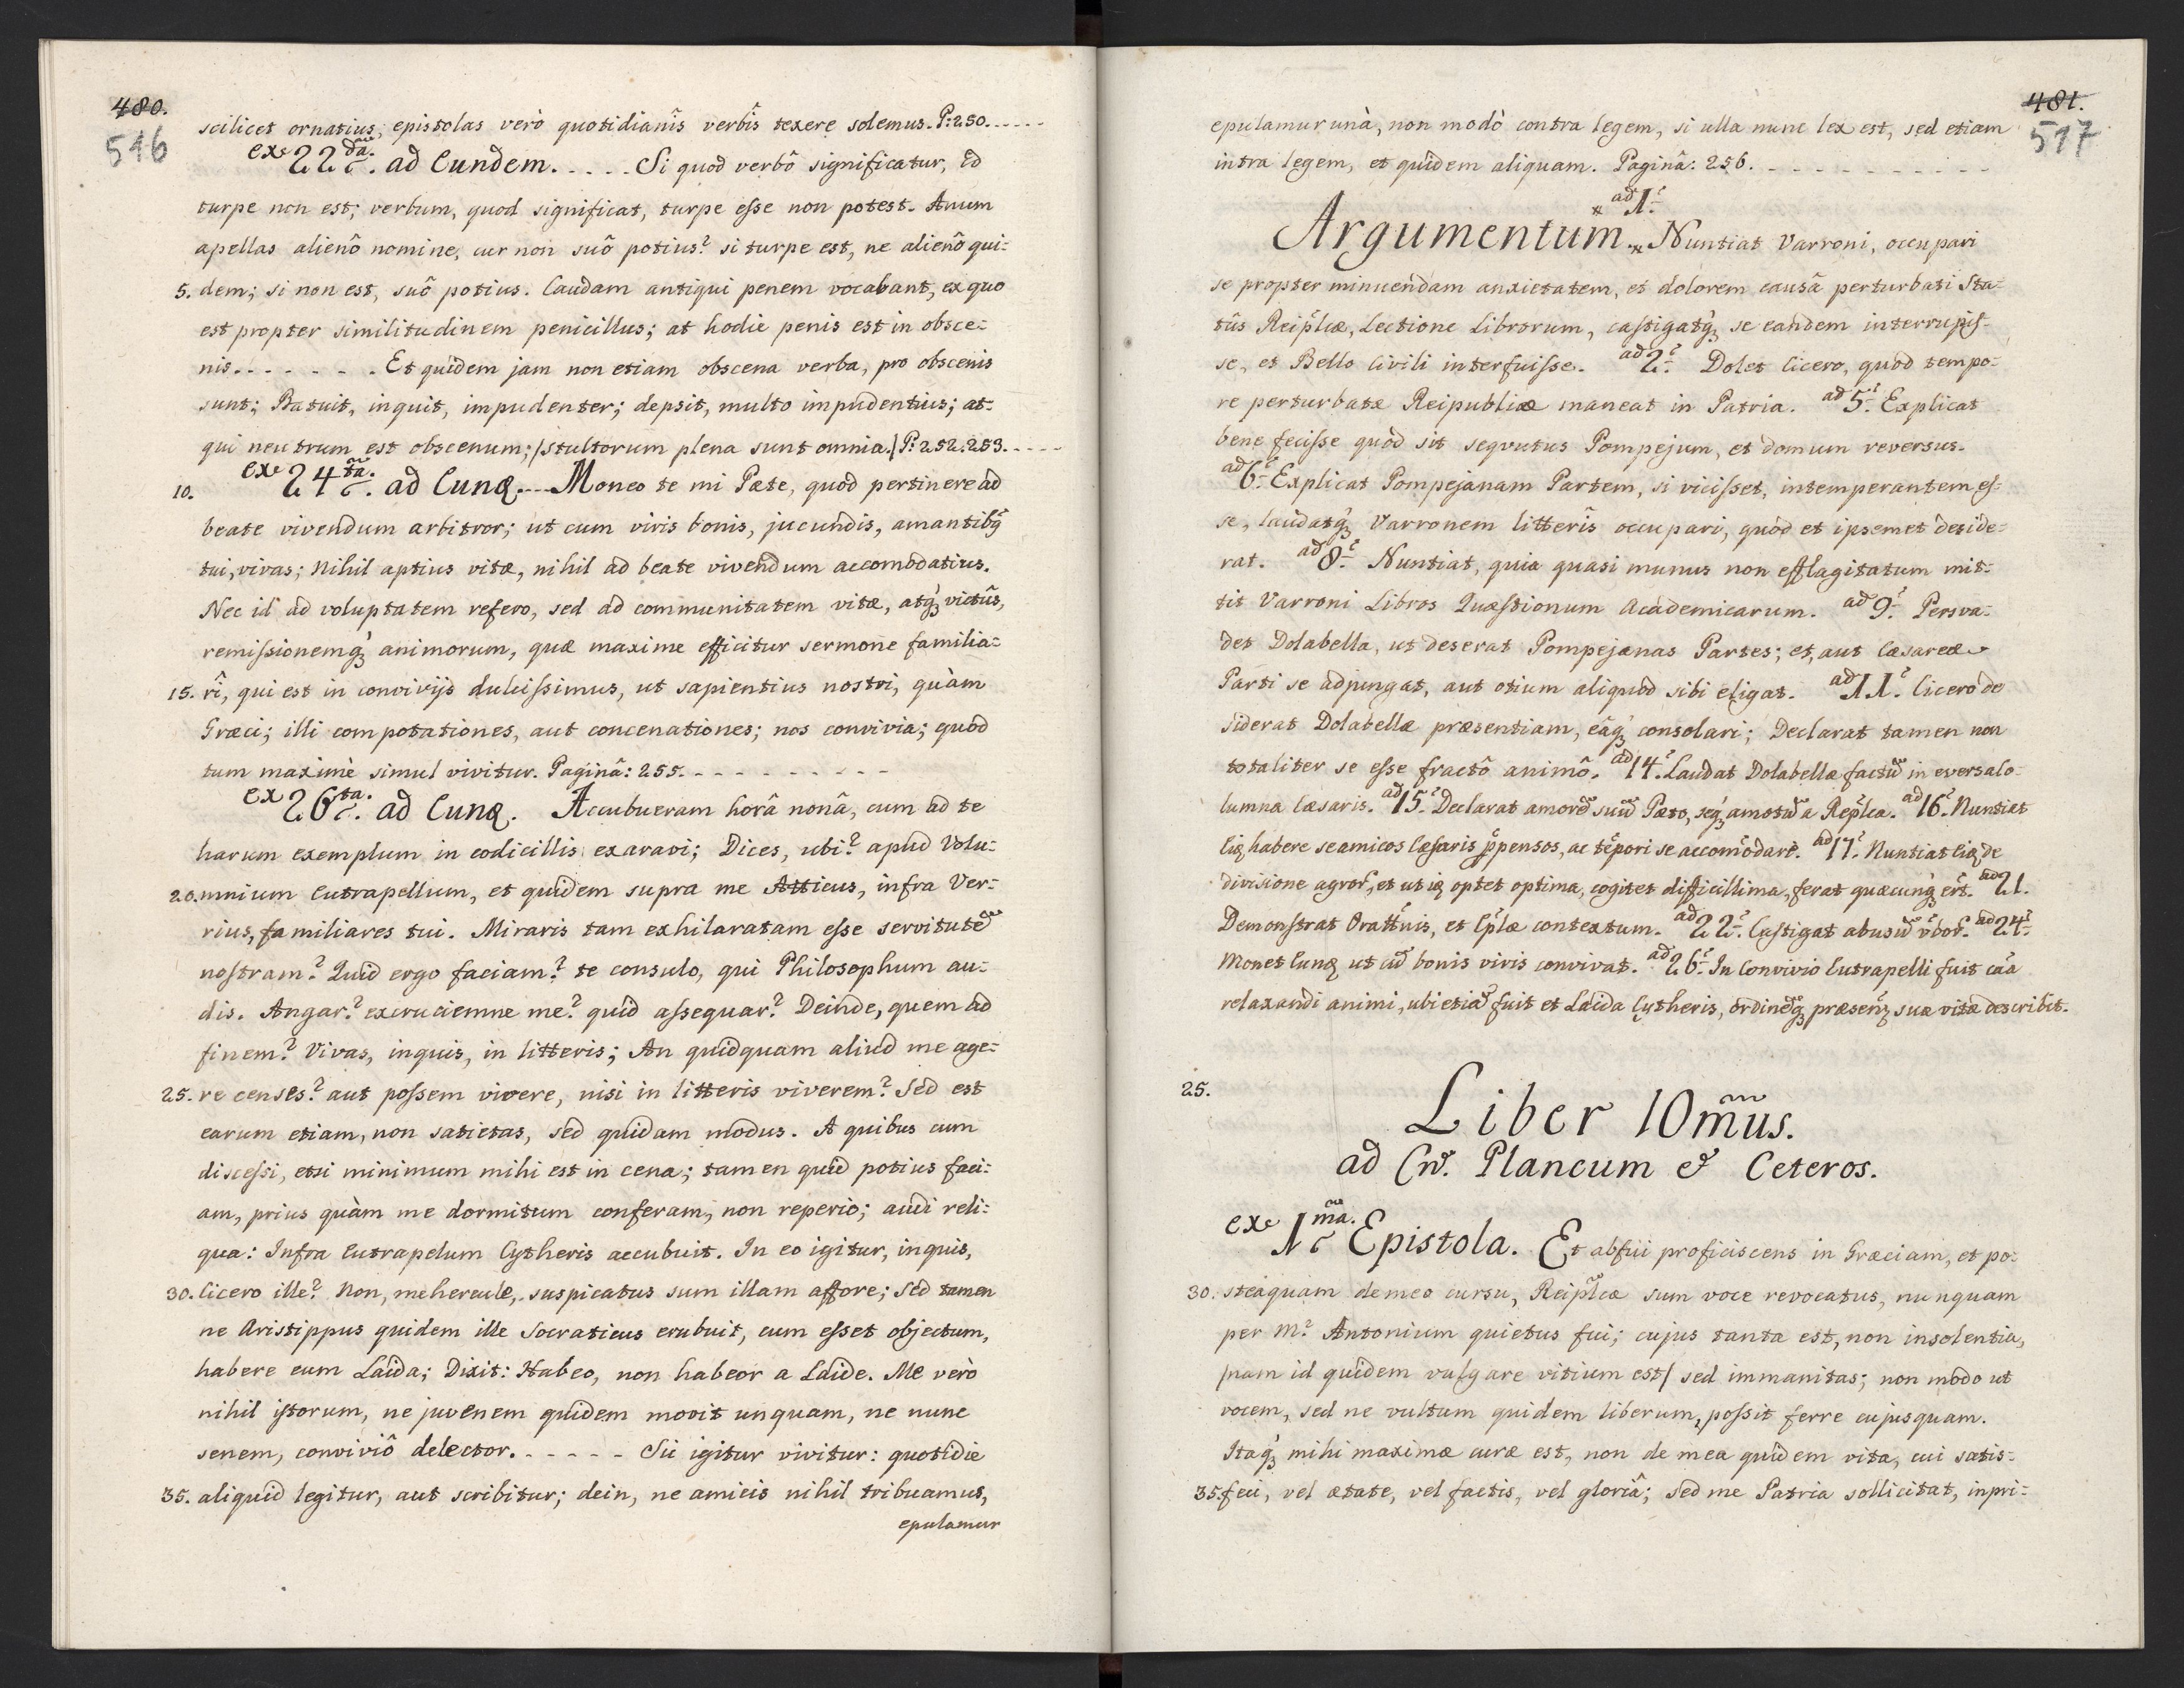 480.
516
scilicet ornatius, epistolas verò quotidianîs verbîs texere solemus. P: 250. - - - - -
ex 22dâ. ad Eundem. - - - - - Si quod verbô significatur, id
turpe non est; verbum, quod significat, turpe esse non potest. Anum
apellas alienô nomine, cur non suô potius? si turpe est, ne alienô qui=
5. dem; si non est, suô potius. Caudam antiqui penem vocabant, ex quo
est propter similitudinem penicillus; at hodie penis est in obsce=
nis. - - - - - - . Et quidem jam non etiam obscena verba, pro obscenis
sunt; Batuit, inquit, impudenter; depsit, multo impudentius; at=
qui neutrum est obscenum; /stultorum plena sunt omnia./ P: 252. 253. - - - -
10. ex 24tâ. ad Eunq. - - - Moneo te mi Pæte, quod pertinere ad
beate vivendum arbitror; ut cum viris bonis, jucundis, amantibq
tui, vivas; Nihil aptius vitæ, nihil ad beate vivendum accomodatius.
Nec id ad voluptatem refero, sed ad communitatem vitæ, atq victûs,
remissionemq animorum, quæ maxime efficitur sermone familia=
15. rî, qui est in convivijs dulcissimus, ut sapientius nostri, quàm
Græci; illi compotationes, aut concenationes; nos convivia; quod
tum maximè simul vivitur. Paginâ: 255. - - - - - - - - -
ex 26tâ. ad Eunq. Accubueram horâ nonâ, cum ad te
harum exemplum in codicillis exaravi; Dices, ubi? apud Volu=
20. mnium Eutrapellium, et quidem supra me Atticus, infra Ver=
rius, familiares tui. Miraris tam exhilaratam esse servitutẽ
nostram? Quid ergo faciam? te consulo, qui Philosophum au=
dis. Angar? excruciemne me? quid assequar? Deinde, quem ad
finem? Vivas, inquis, in litteris; An quidquam aliud me age=
25. re censes? aut possem vivere, nisi in litteris viverem? Sed est
earum etiam, non satietas, sed quidam modus. A quibus cum
discessi, etsi minimum mihi est in cena; tamen quid potius faci=
am, prius quàm me dormitum conferam, non reperio; audi reli=
qua: Infra Eutrapelum Cytheris accubuit. In eo igitur, inquis,
30. Cicero ille? Non, mehercule, suspicatus sum illam affore; sed tamen
ne Aristippus quidem ille Socraticus erubuit, cum esset objectum,
habere eum Laida; Dixit: Habeo, non habeor a Laide. Me verò
nihil istorum, ne juvenem quidem movit unquam, ne nunc
senem, conviviô delector. - - - - - Sic igitur vivitur: quotidie
35. aliquid legitur, aut scribitur; dein, ne amicis nihil tribuamus,
epulamur
481.
517
epulamur unà, non modò contra legem, si ulla nunc lex est, sed etiam
intra legem, et quidem aliquam. Paginâ: 256. - - - - - - - - - -
* ad 1.
Argumentum. * Nuntiat Varroni, occupari
se propter minuendam anxietatem, et dolorem causâ perturbati sta=
tûs Reiplcæ, Lectione Librorum, castigatq se eandem interrupis=
se, et Bello Civili interfuisse. ad 2. Dolet Cicero, quod tempo=
re perturbatæ Reipublicæ maneat in Patria. ad 5. Explicat
bene fecisse quòd sit seqvutus Pompejum, et domum reversus.
ad 6. Explicat Pompejanam Partem, si vicisset, intemperantem es=
se, laudatq Varronem litterîs occupari, quòd et ipsemet deside=
rat. ad 8. Nuntiat, quia quasi munus non efflagitatum mit=
tit Varroni Libros Quæstionum Academicarum. ad 9. Persva=
det Dolabella, ut deserat Pompejanas Partes; et, aut Cæsareæ
Parti se adjungat, aut otium aliquod sibi eligat. ad 11. Cicero de
siderat Dolabellæ præsentiam, eâq consolari; Declarat tamen non
totaliter se esse fractô animô. ad 14. Laudat Dolabellæ factũ in eversa Co=
lumna Cæsaris. ad 15. Declarat amorẽ suũ Pæto, seq amotũ a Replca. ad 16. Nuntiat
Eiq habere se amicos Cæsaris ppensos, ac tẽpori se accomõdare. ad 17. Nuntiat Eiq de
divisione agror, et ut iq optet optima, cogitet difficillima, ferat quæcunq ert. ad 21.
Demonstrat Orattnis, et Eplæ contextum. ad 22. Castigat abusũ vbor. ad 24.
Monet Eunq ut cũ bonis viris convivat. ad 26. In Convivio Eutrapelli fuit cãa
relaxandi animi, ubi etiã fuit et Laida Cytheris, ordinẽq præsenq suæ vitæ describit.
25.
Liber 10mus.
ad Cn. Plancum & Ceteros.
ex 1mâ. Epistola. Et abfui proficiscens in Græciam, et po=
30. steaquam de meo cursu, Reiplcæ sum voce revocatus, nunquam
per M. Antonium quietus fui; cujus tanta est, non insolentia,
/nam id quidem vulgare vitium est/ sed immanitas; non modo ut
vocem, sed ne vultum quidem liberum, possit ferre cujusquam.
Itaq mihi maximæ curæ est, non de mea quidem vita, cui satis=
35. feci, vel ætate, vel factis, vel gloriâ; sed me Patria sollicitat, inpri=